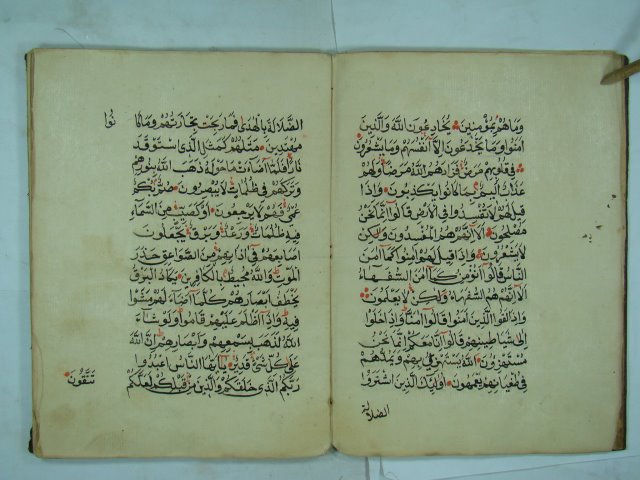 وَمَا هُمْ بِمُؤْمِنِينَ يُخَادِعُونَ اللهَ وَالَّذِينَ
اٰمَنُوا وَمَا يَخْدَعُونَ اِلَّا اَنْفُسَهُمْ وَمَا يَشْعُرُونَ
فِي قُلُوبِهِمْ مَرَضٌ فَزَادَهُمُ اللهُ مَرَضًا وَلَهُمْ
عَذَابٌ اَلِيمٌ بِمَا كَانُوا يَكْذِبُونَ وَاِذَا
قِيلَ لَهُمْ لَا تُفْسِدُوا فِي الْاَرْضِ قَالُوا اِنَّمَا نَحْنُ
مُصْلِحُونَ اَلَا اِنَّهُمْ هُمُ الْمُفْسِدُونَ وَلٰكِنْ
لَا يَشْعُرُونَ وَاِذَا قِيلَ لَهُمْ اٰمِنُوا كَمَا اٰمَنَ
النَّاسُ قَالُوا اَنُؤْمِنُ كَمَا اٰمَنَ السُّفَهَاءُ
اَلَا اِنَّهُمْ هُمُ السُّفَهَاءُ وَلٰكِنْ لَا يَعْلَمُونَ
وَاِذَا لَقُوا الَّذِينَ اٰمَنُوا قَالُوا اٰمَنَّا وَاِذَا خَلَوْا
اِلٰى شَيَاطِينِهِمْ قَالُوا اِنَّا مَعَكُمْ اِنَّمَا نَحْنُ
مُسْتَهْزِؤُنَ اللهُ يَسْتَهْزِئُ بِهِمْ وَيَمُدُّهُمْ
فِي طُغْيَانِهِمْ يَعْمَهُونَ اُولٰئِكَ الَّذِينَ اشْتَرَوُا
الضلالة
الضَّلَالَةَ بِالْهُدٰى فَمَا رَبِحَتْ تِجَارَتُهُمْ وَمَا كَا نُوا
مُهْتَدِينَ مَثَلُهُمْ كَمَثَلِ الَّذِي اسْتَوْقَدَ
نَارًا فَلَمَّا اَضَاءَتْ مَا حَوْلَهُ ذَهَبَ اللهُ بِنُورِهِمْ
وَتَرَكَهُمْ فِي ظُلُمَاتٍ لَا يُبْصِرُونَ صُمٌّ بُكْمٌ
عُمْيٌ فَهُمْ لَا يَرْجِعُونَ اَوْ كَصَيِّبٍ مِنَ السَّمَاءِ
فِيهِ ظُلُمَاتٌ وَرَعْدٌ وَبَرْقٌ يَجْعَلُونَ
اَصَابِعَهُمْ فِي اٰذَانِهِمْ مِنَ الصَّوَاعِقِ حَذَرَ
الْمَوْتِ وَاللهُ مُحِيطٌ بِالْكَافِرِينَ يَكَادُ الْبَرْقُ
يَخْطَفُ اَبْصَارَهُمْ كُلَّمَا اَضَاءَ لَهُمْ مَشَوْا
فِيهِ وَاِذَا اَظْلَمَ عَلَيْهِمْ قَامُوا وَلَوْ شَاءَ
اللهُ لَذَهَبَ بِسَمْعِهِمْ وَاَبْصَارِهِمْ اِنَّ اللهَ
عَلٰى كُلِّ شَيْءٍ قَدِيرٌ يَا اَيُّهَا النَّاسُ اعْبُدُوا
رَبَّكُمُ الَّذِي خَلَقَكُمْ وَالَّذِينَ مِنْ قَبْلِكُمْ لَعَلَّكُمْ
تَتَّقُونَ